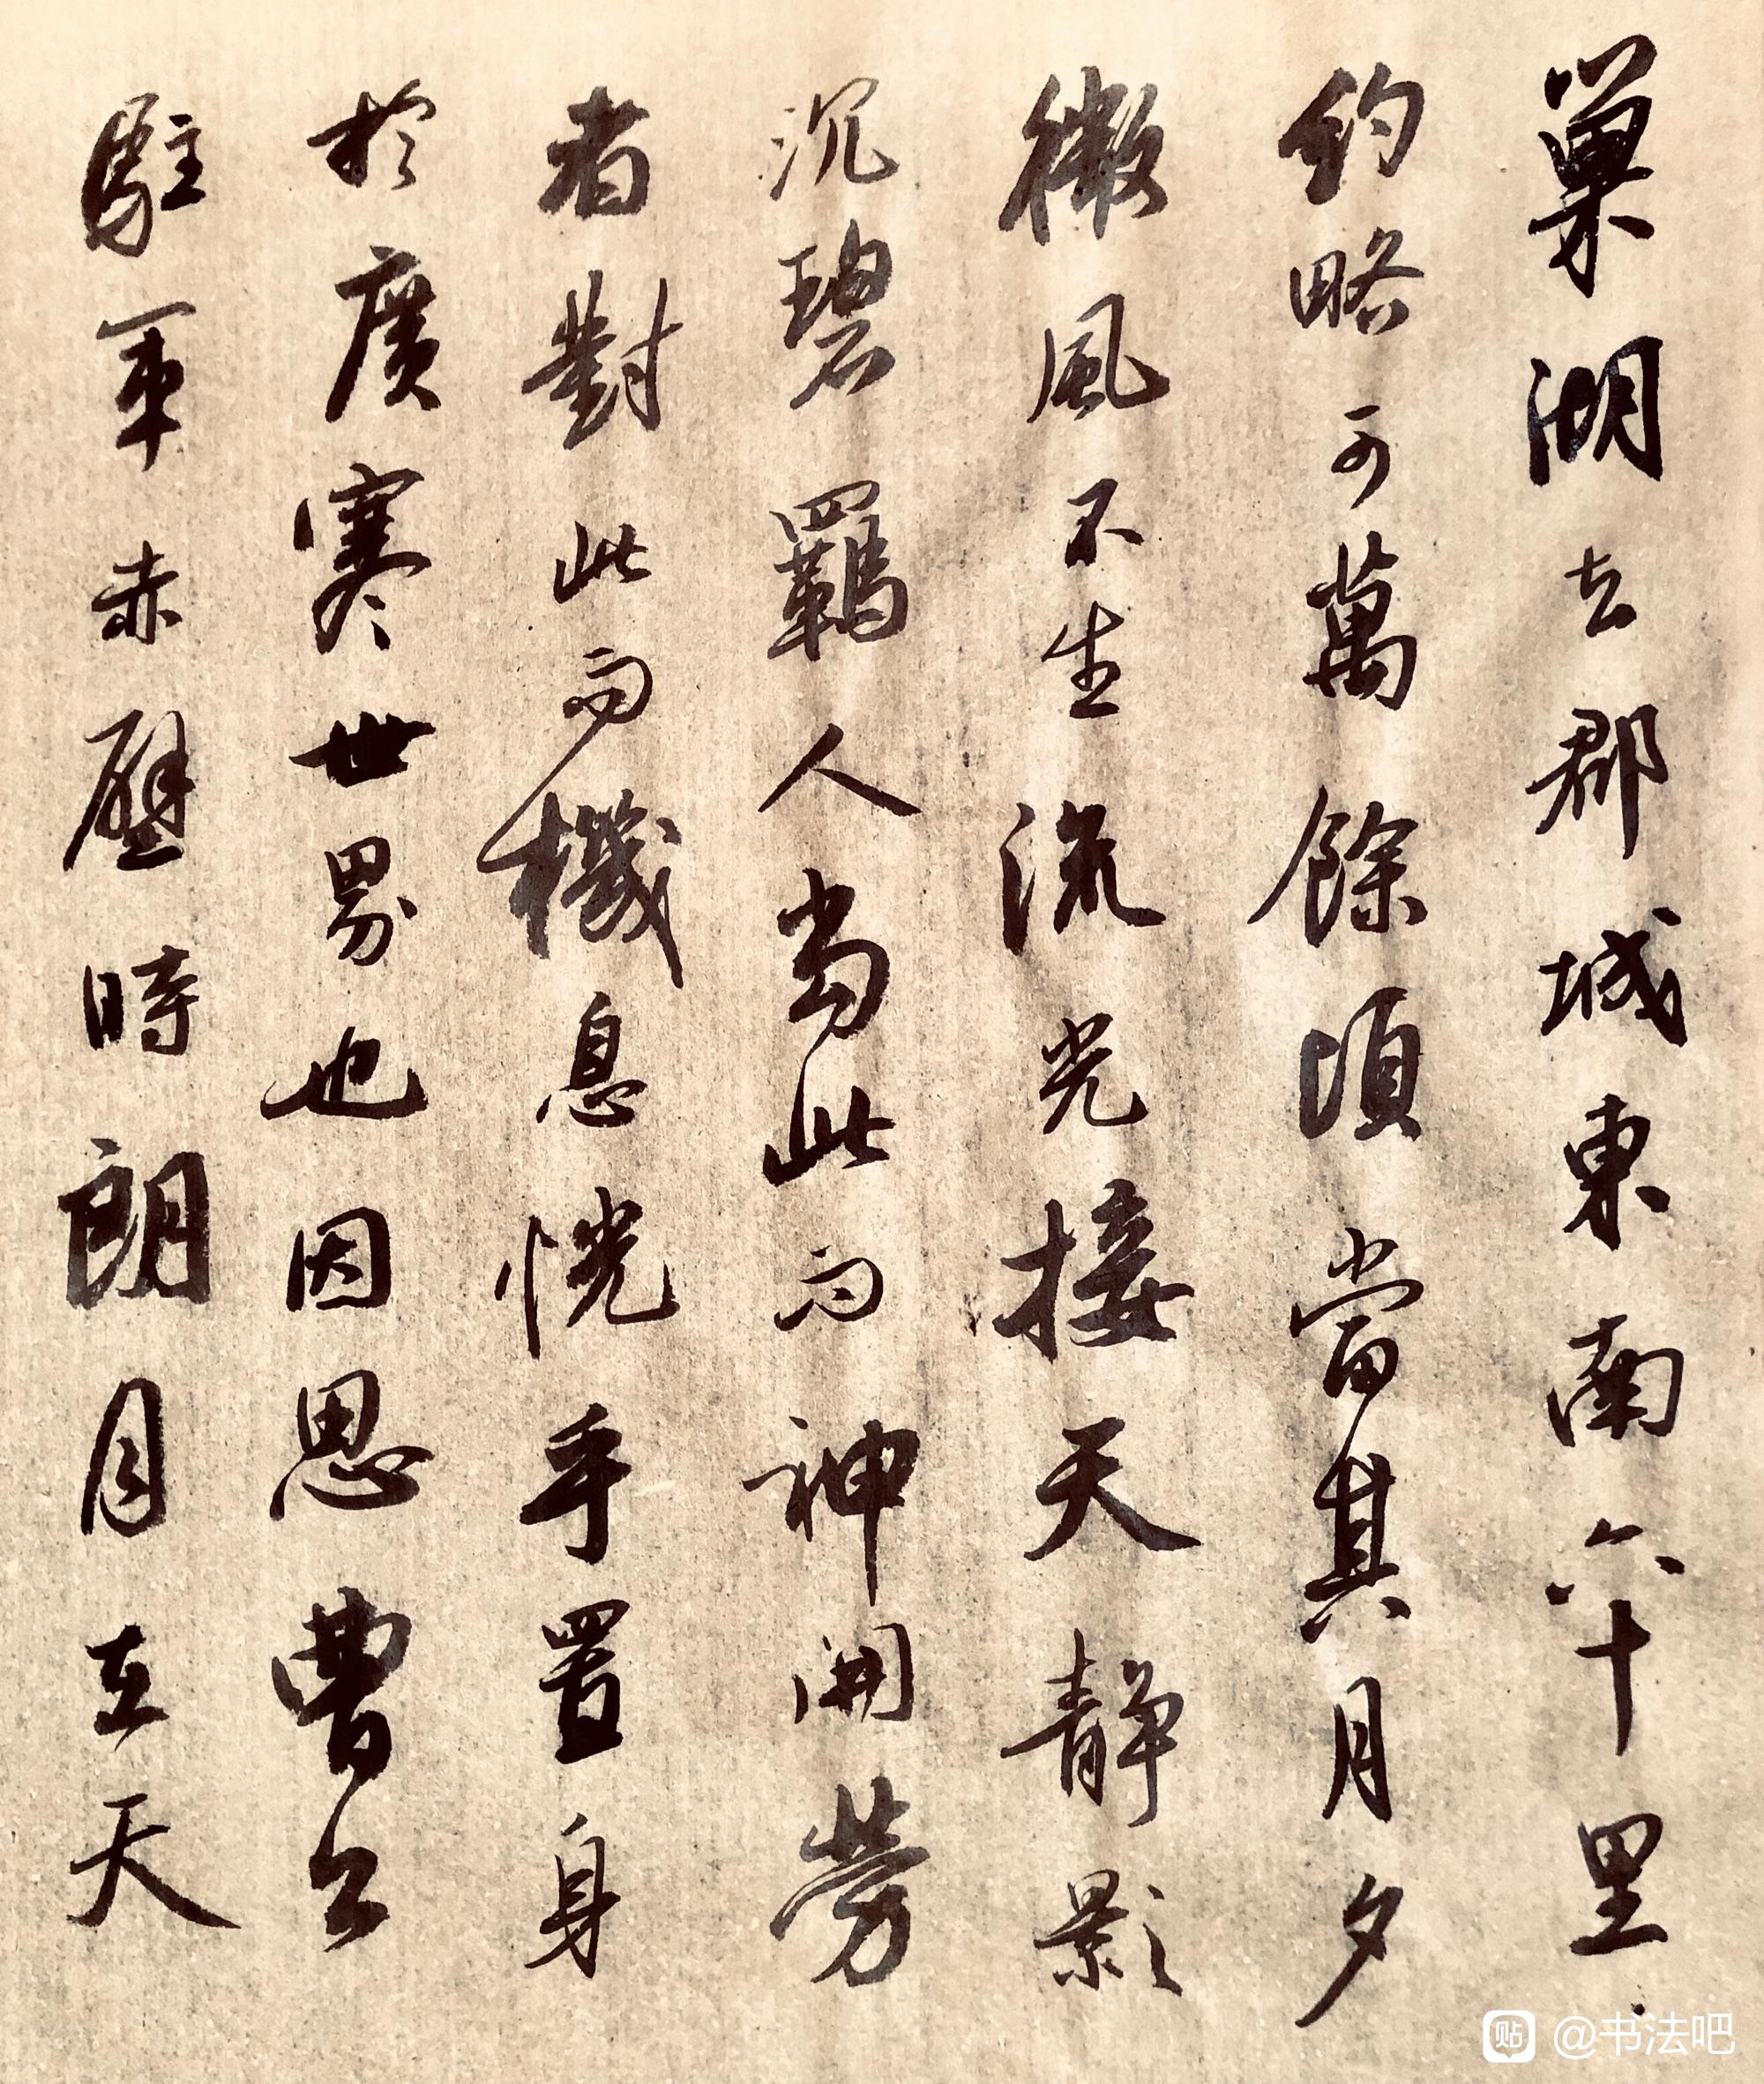 巢湖去郡城東南六十里
約略可萬餘頃當其月夕
微風不生流光接天静影
沉碧羈人當此而神開勞
者對此而機息恍乎置身
於廣寒世界也因思曹公
駐軍赤壁時朗月在天
@书法吧